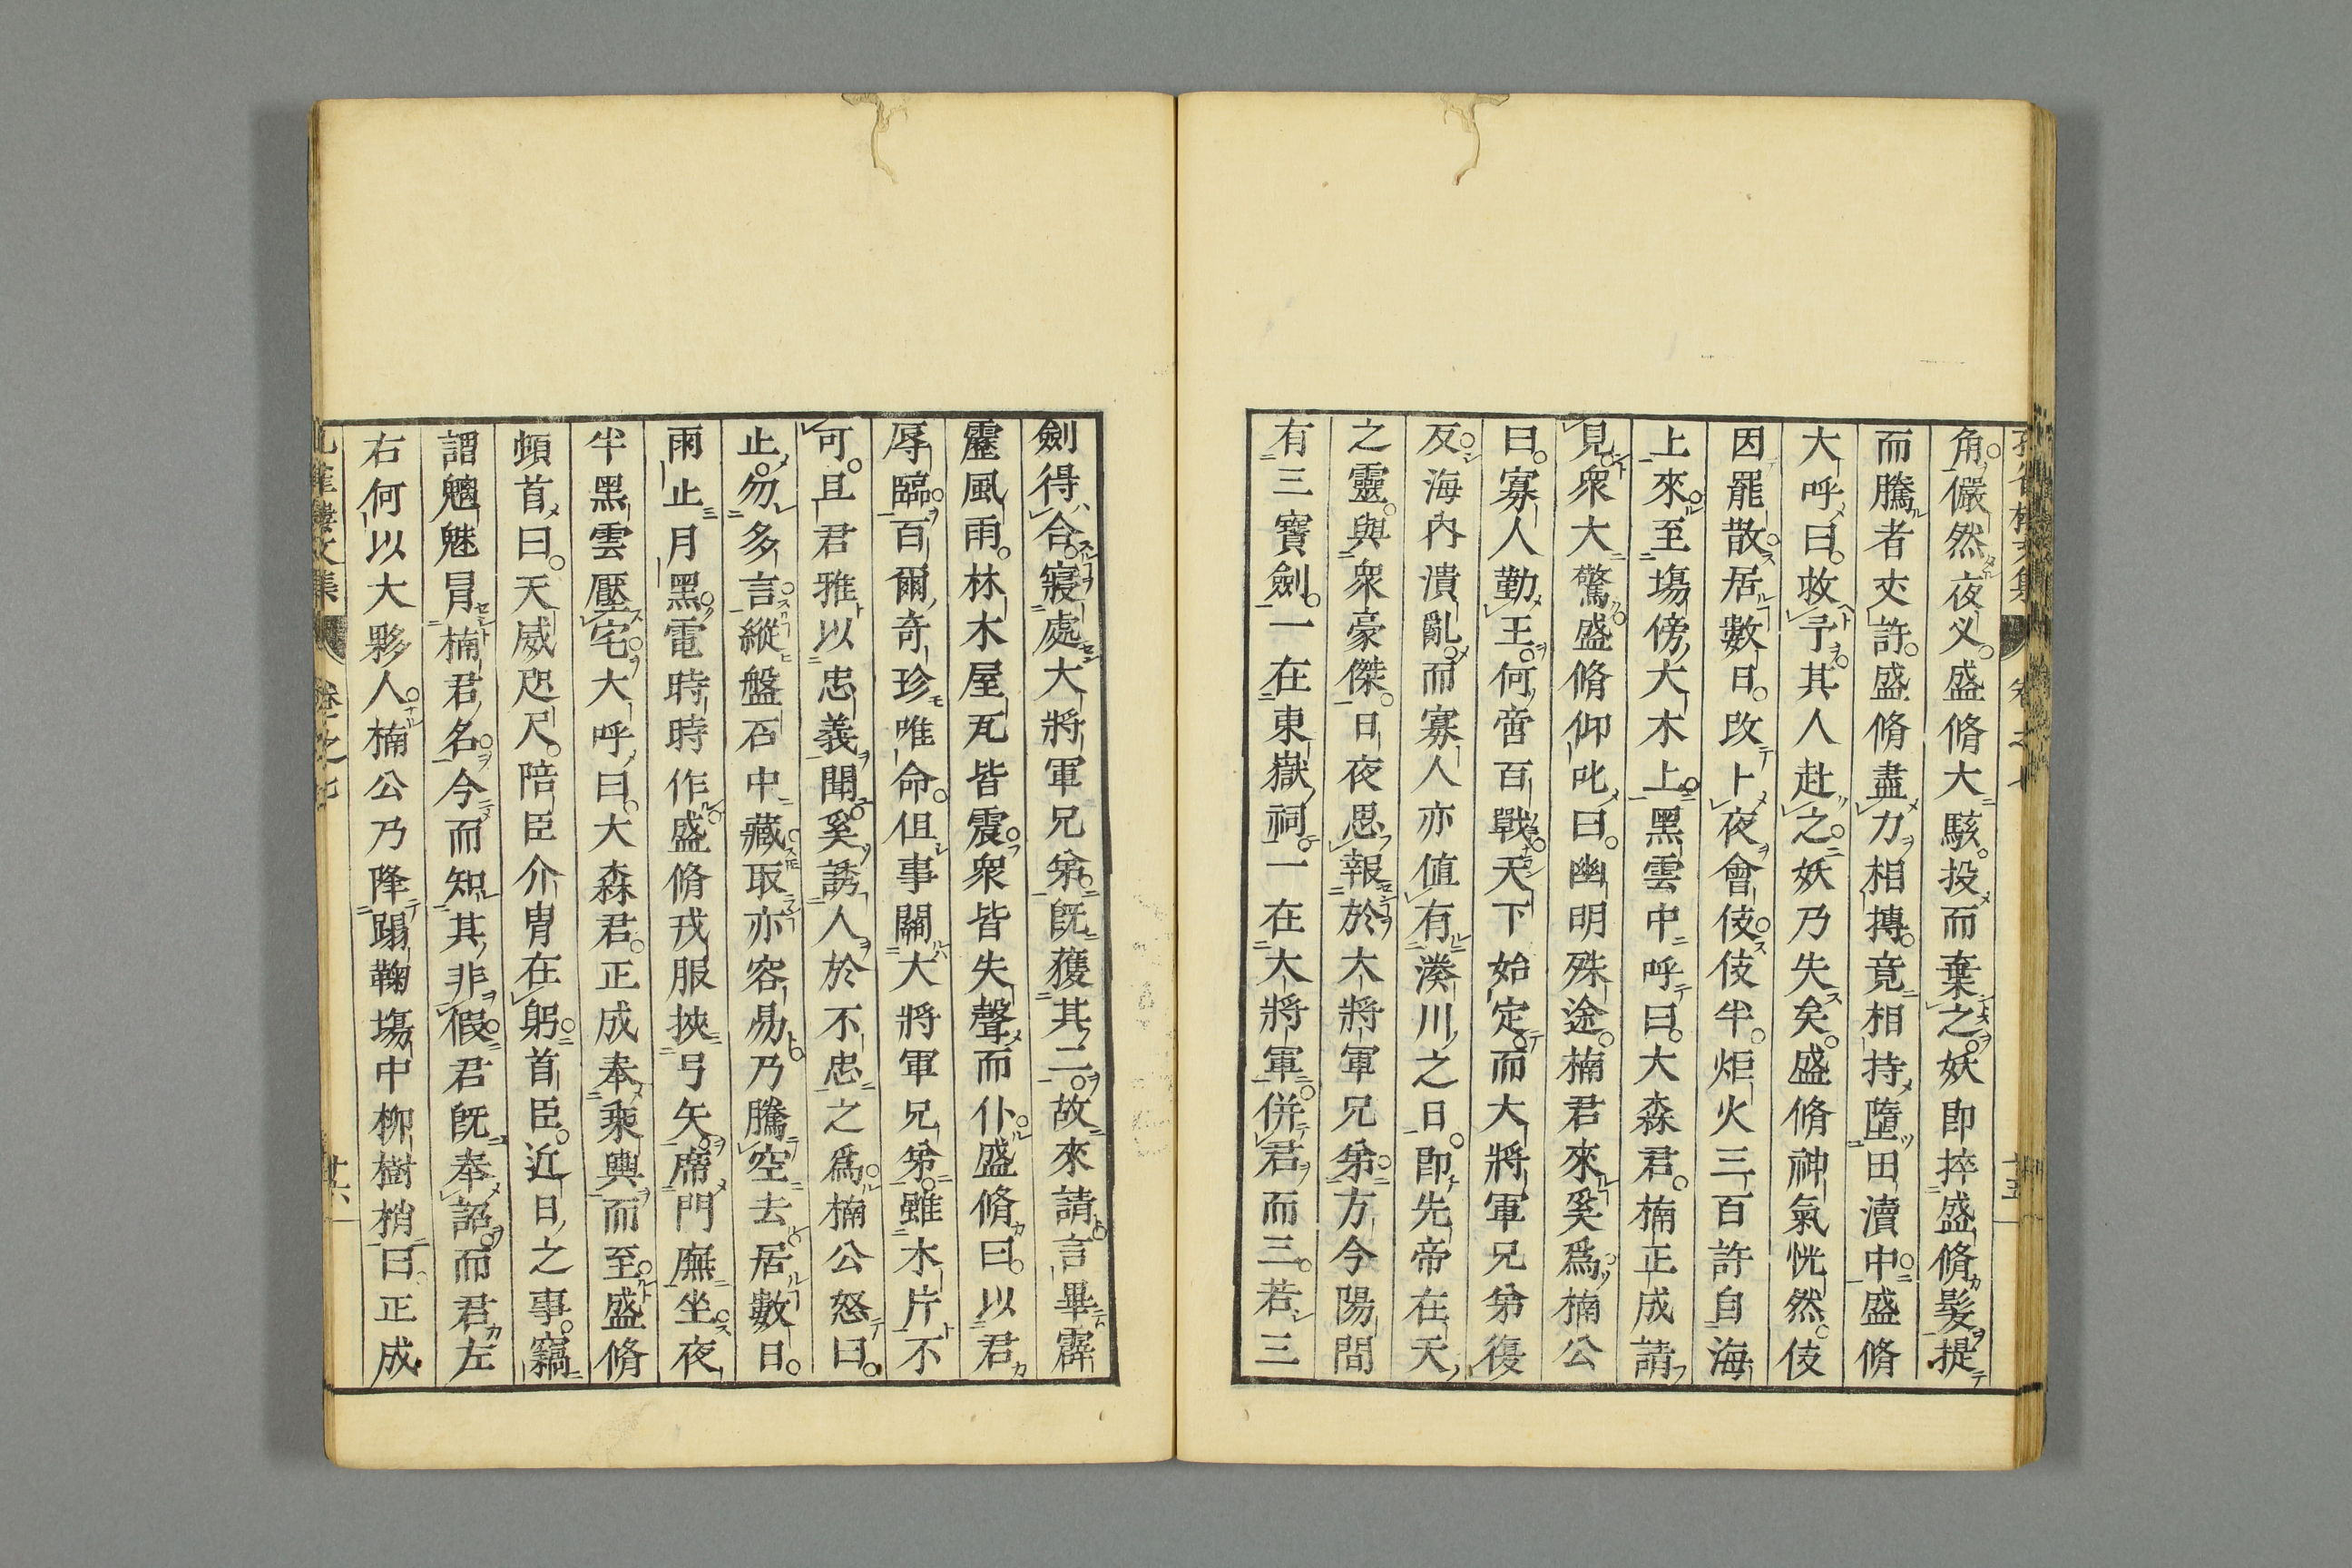 角儼然夜义盛脩大駭投而棄之妖即捽盛脩髮提
而騰者丈許盛脩盡力相搏竟相持墮田瀆中盛脩
大呼曰救予其人赴之妖乃失矣盛脩神氣恍然伎
因罷散居數日改卜夜會伎伎半炬火三百許自海
上來至塲傍大木上黑雲中呼曰大森君楠正成請
見衆大驚盛脩仰叱曰幽明殊途楠君來奚爲楠公
曰寡人勤王何啻百戰天下始定而大將軍兄弟復
反海內潰亂而寡人亦值有湊川之日即先帝在天
之靈與衆豪傑日夜思報於大將軍兄弟方今陽間
有三寶劍一在東嶽祠一在大將軍併君而三若三
劍得合寢處大將軍兄弟旣獲其二故來請言畢霹
靂風雨林木屋瓦皆震衆皆失聲而仆盛脩曰以君
辱臨百爾奇珍唯命但事關大將軍兄弟雖木片不
可且君雅以忠義聞奚誘人於不忠之爲楠公怒曰
止勿多言縱盤石中藏取亦容易乃騰空去居數日
雨止月黑電時時作盛脩戎服挾弓矢席門廡坐夜
半黑雲壓宅大呼曰大森君正成奉乘輿而至盛脩
頓首曰天威咫尺陪臣介冑在躬首臣近日之事竊
謂魍魅冒楠君名今而知其非假君旣奉詔而君左
右何以大夥人楠公乃降蹋鞠塲中柳樹梢曰正成
孔雀樓文集
卷之七
十六
卷之七
十五